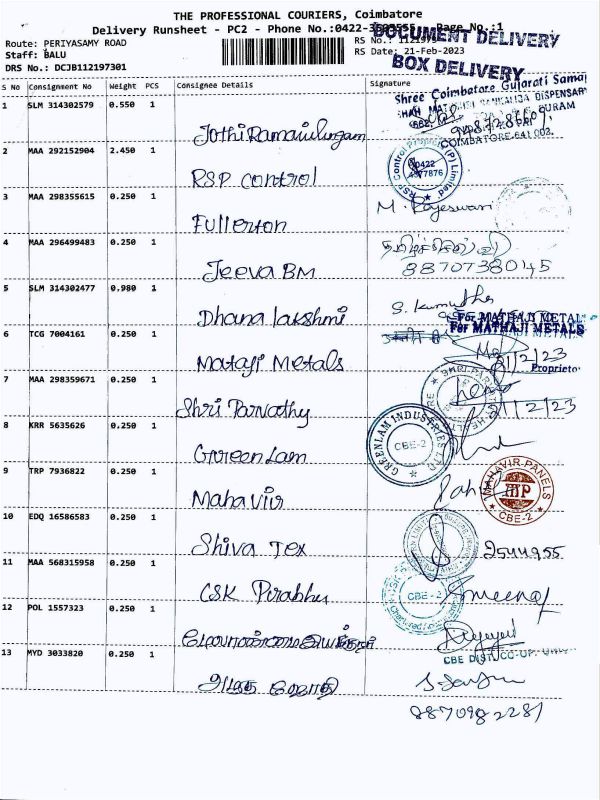 THE PROFESSIONAL COURIERS, Coimbatore
Delivery Runsheet - PC2 - Phone No.:0422- Page No.:1
DOCUMENT DELIVERY
Route: PERIYASAMY ROAD RS No.:
Staff: BALU RS Date: 21-Feb-2023
BOX DELIVERY
DRS No.: DCJB112197301
S No Consignment No Weight PCS Consignee Details Signature
Shree Coimbatore Gujarati Samaj
1 SLM 314302579 0.550 1
COIMBATORE-641 002.
2 MAA 292152904 2.450 1 RSP Control
0422
4977876
3 MAA 298355615 0.250 1 Fullerton M. Rajeswari
4 MAA 296499483 0.250 1 Jeeva BM
8870738045
5 SLM 314302477 0.980 1 Dhana lakshmi
For MATHAJI METALS
For MATHAJI METALS
6 TCG 7004161 0.250 1 Mataji Metals
21/2/23
Proprietor
7 MAA 298359671 0.250 1 Shri Parvathy
21/2/23
8 KRR 5635626 0.250 1 Green Lam
GREENLAM INDUSTRIES LTD
CBE-2
9 TRP 7936822 0.250 1 Mahavir
MAHAVIR PANELS
MP
CBE-2
10 EDQ 16586583 0.250 1 Shiva Tex 2544955
11 MAA 568315958 0.250 1 CSK Pirabhu
CBE - 2
12 POL 1557323 0.250 1
CBE DIST. CO-OP.
13 MYD 3033820 0.250 1
8870982281